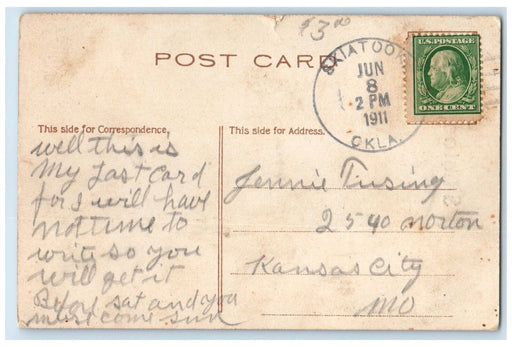 $3.00
POST CARD
SKIATOOK
JUN
8
2 PM
1911
OKLA.
U.S. POSTAGE
ONE CENT
This side for Correspondence.
well this is
my Last Card
for I will have
not time to
write so you
will get it
Befor sat and you
must come sun
This side for Address.
Jennie Tusing
2540 Norton
Kansas City
Mo